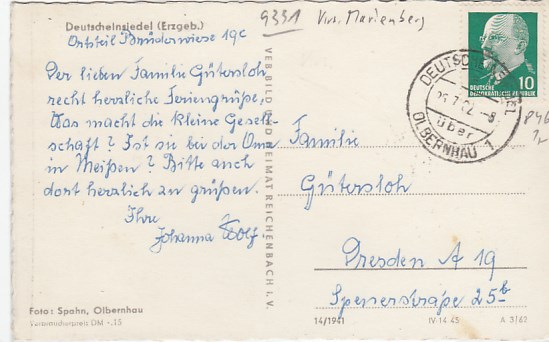 Deutscheinsiedel (Erzgeb.)
Ortsteil Brüderwiese 19c
9331 Krs. Marienberg
Der lieben Familie Gütersloh
recht herzliche Feriengrüße,
Was macht die kleine Gesell-
schaft? Ist sie bei der Oma
in Meißen? Bitte auch
dort herzlich zu grüßen.
Ihre
Johanna Wolf.
Foto: Spahn, Olbernhau
Verbraucherpreis DM -.15
VEB BILD UND HEIMAT REICHENBACH i. V.
DEUTSCHE
DEMOKRATISCHE REPUBLIK
10
über
OLBERNHAU 1
Familie
Gütersloh
Dresden A 19
Spenerstraße 25b
14/1941
IV-14-45
A 3/62